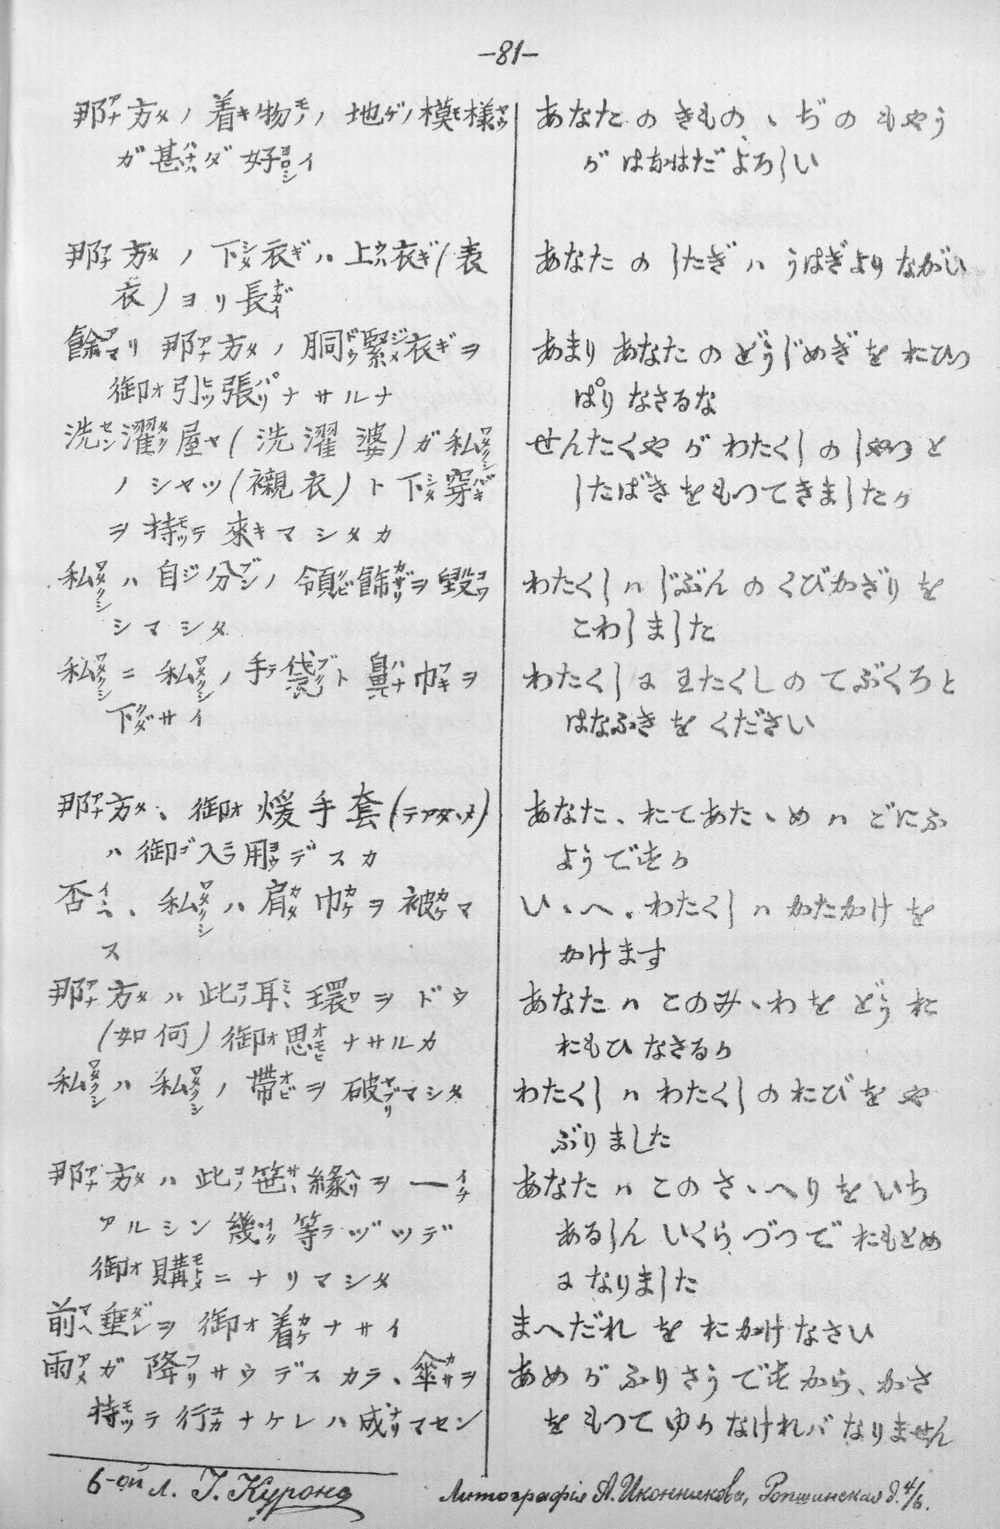 —81—
那方ノ着物ノ地ノ模様
ガ甚ダ好イ
那方ノ下衣ハ上衣(表
衣)ヨリ長
餘リ那方ノ胴緊衣ヲ
御引張ナサルナ
洗濯屋(洗濯婆)ガ私
ノシャツ(襯衣)ト下穿
ヲ持テ來マシタカ
私ハ自分ノ領飾ヲ毀
シマシタ
私ニ私ノ手袋ト鼻巾ヲ
下サイ
那方、御煖手套(テアタヽメ)
ハ御入用デスカ
否、私ハ肩巾ヲ被マ
ス
那方ハ此耳環ヲドウ
(如何)御思ナサルカ
私ハ私ノ帶ヲ破マシタ
那方ハ此笹緣ヲ一
アルシン幾等ヅツデ
御購ニナリマシタ
前垂ヲ御着ナサイ
雨ガ降サウデスカラ、傘ヲ
持テ行ナケレハ成マセン
あなたのきもの、ぢのもやう
がはなはだよろしい
あなたのしたぎハうはぎよりながい
あまりあなたのどうじめぎをおひつ
ぱりなさるな
せんたくやがわたくしのしやつと
したばきをもつてきましたか
わたくしハじぶんのくびかざりを
こわしました
わたくしにわたくしのてぶくろと
はなふきをください
あなた、おてあたゝめハごにふ
ようですか
いゝへ、わたくしハかたかけを
かけます
あなたハこのみゝわをどうお
おもひなさるか
わたくしハわたくしのおびをや
ぶりました
あなたハこのさゝへりをいち
あるしんいくらづつでおもとめ
になりました
まへだれをおかけなさい
あめがふりさうですから、かさ
をもつてゆかなけれバなりません
6-ой л. І. Куроно
Литографія А. Иконникова, Ропшинская д. 4/6.